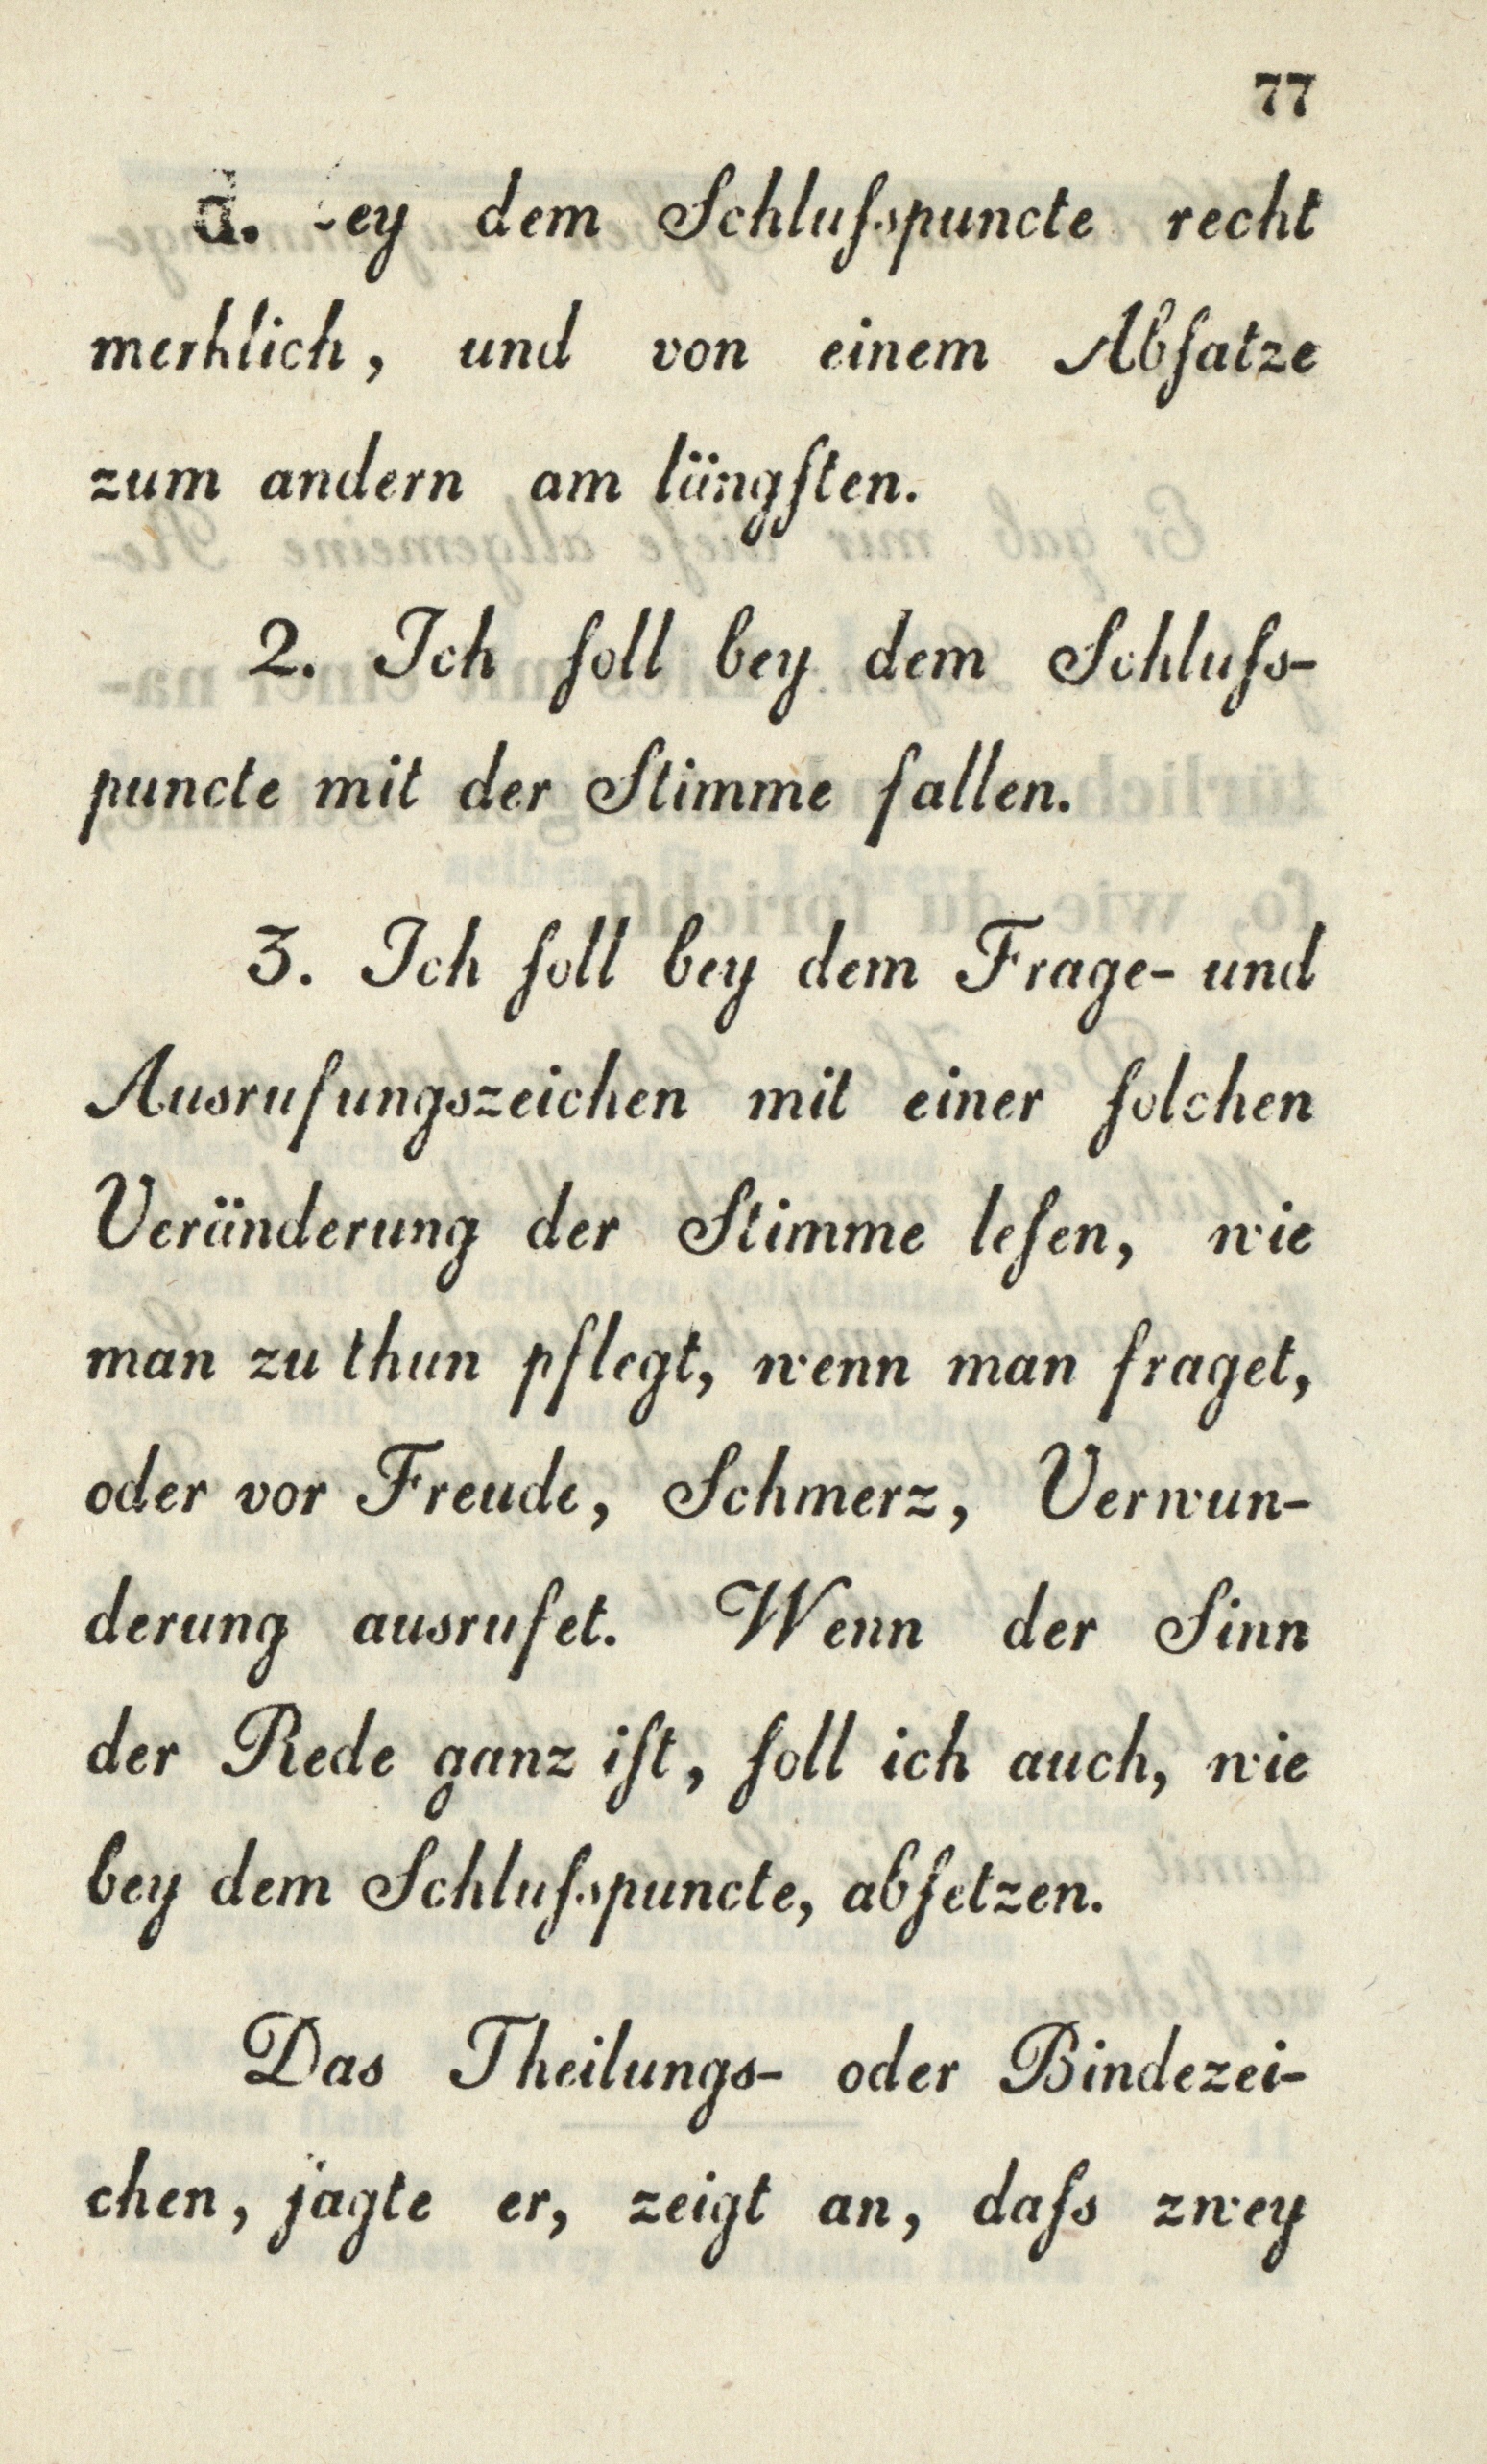 77
d. bey dem Schluſspuncte recht
merklich, und von einem Abſatze
zum andern am längſten.
2. Ich ſoll bey dem Schluſs-
puncte mit der Stimme fallen.
3. Ich ſoll bey dem Frage- und
Ausrufungszeichen mit einer ſolchen
Veränderung der Stimme leſen, wie
man zu thun pflegt, wenn man fraget,
oder vor Freude, Schmerz, Verwun-
derung ausrufet. Wenn der Sinn
der Rede ganz iſt, ſoll ich auch, wie
bey dem Schluſspuncte, abſetzen.
Das Theilungs- oder Bindezei-
chen, ſagte er, zeigt an, daſs zwey